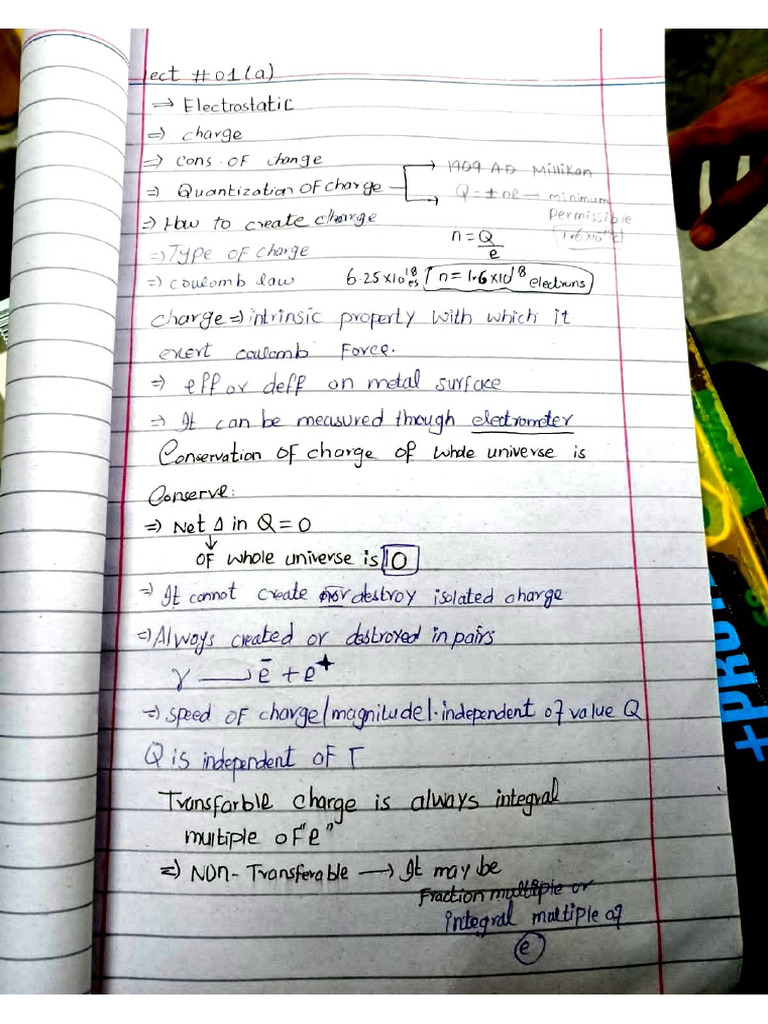 ect #01(a)
→ Electrostatic
⇒ charge
⇒ cons. of change
⇒ Quantization of charge → 1909 AD Millikan
→ Q = ±ne → minimum
Permissible
⇒ How to create charge
n = Q/e
⇒ Type of charge
⇒ coulomb law 6.25×10¹⁸ es n = 1.6×10¹⁸ electrons
charge ⇒ intrinsic property with which it
exert coulomb Force.
⇒ eff or deff on metal surface
⇒ It can be measured through electrometer
Conservation of charge of whole universe is
Conserve:
⇒ Net Δ in Q = 0
↓
of whole universe is 0
⇒ It cannot create nor destroy isolated charge
⇒ Always created or destroyed in pairs
γ → e⁻ + e⁺
⇒ speed of charge/magnitude/.independent of value Q
Q is independent of T
Transfarble charge is always integral
multiple of "e"
⇒ NON-Transferable → It may be
Fraction multiple or
integral multiple of
e
+PRO